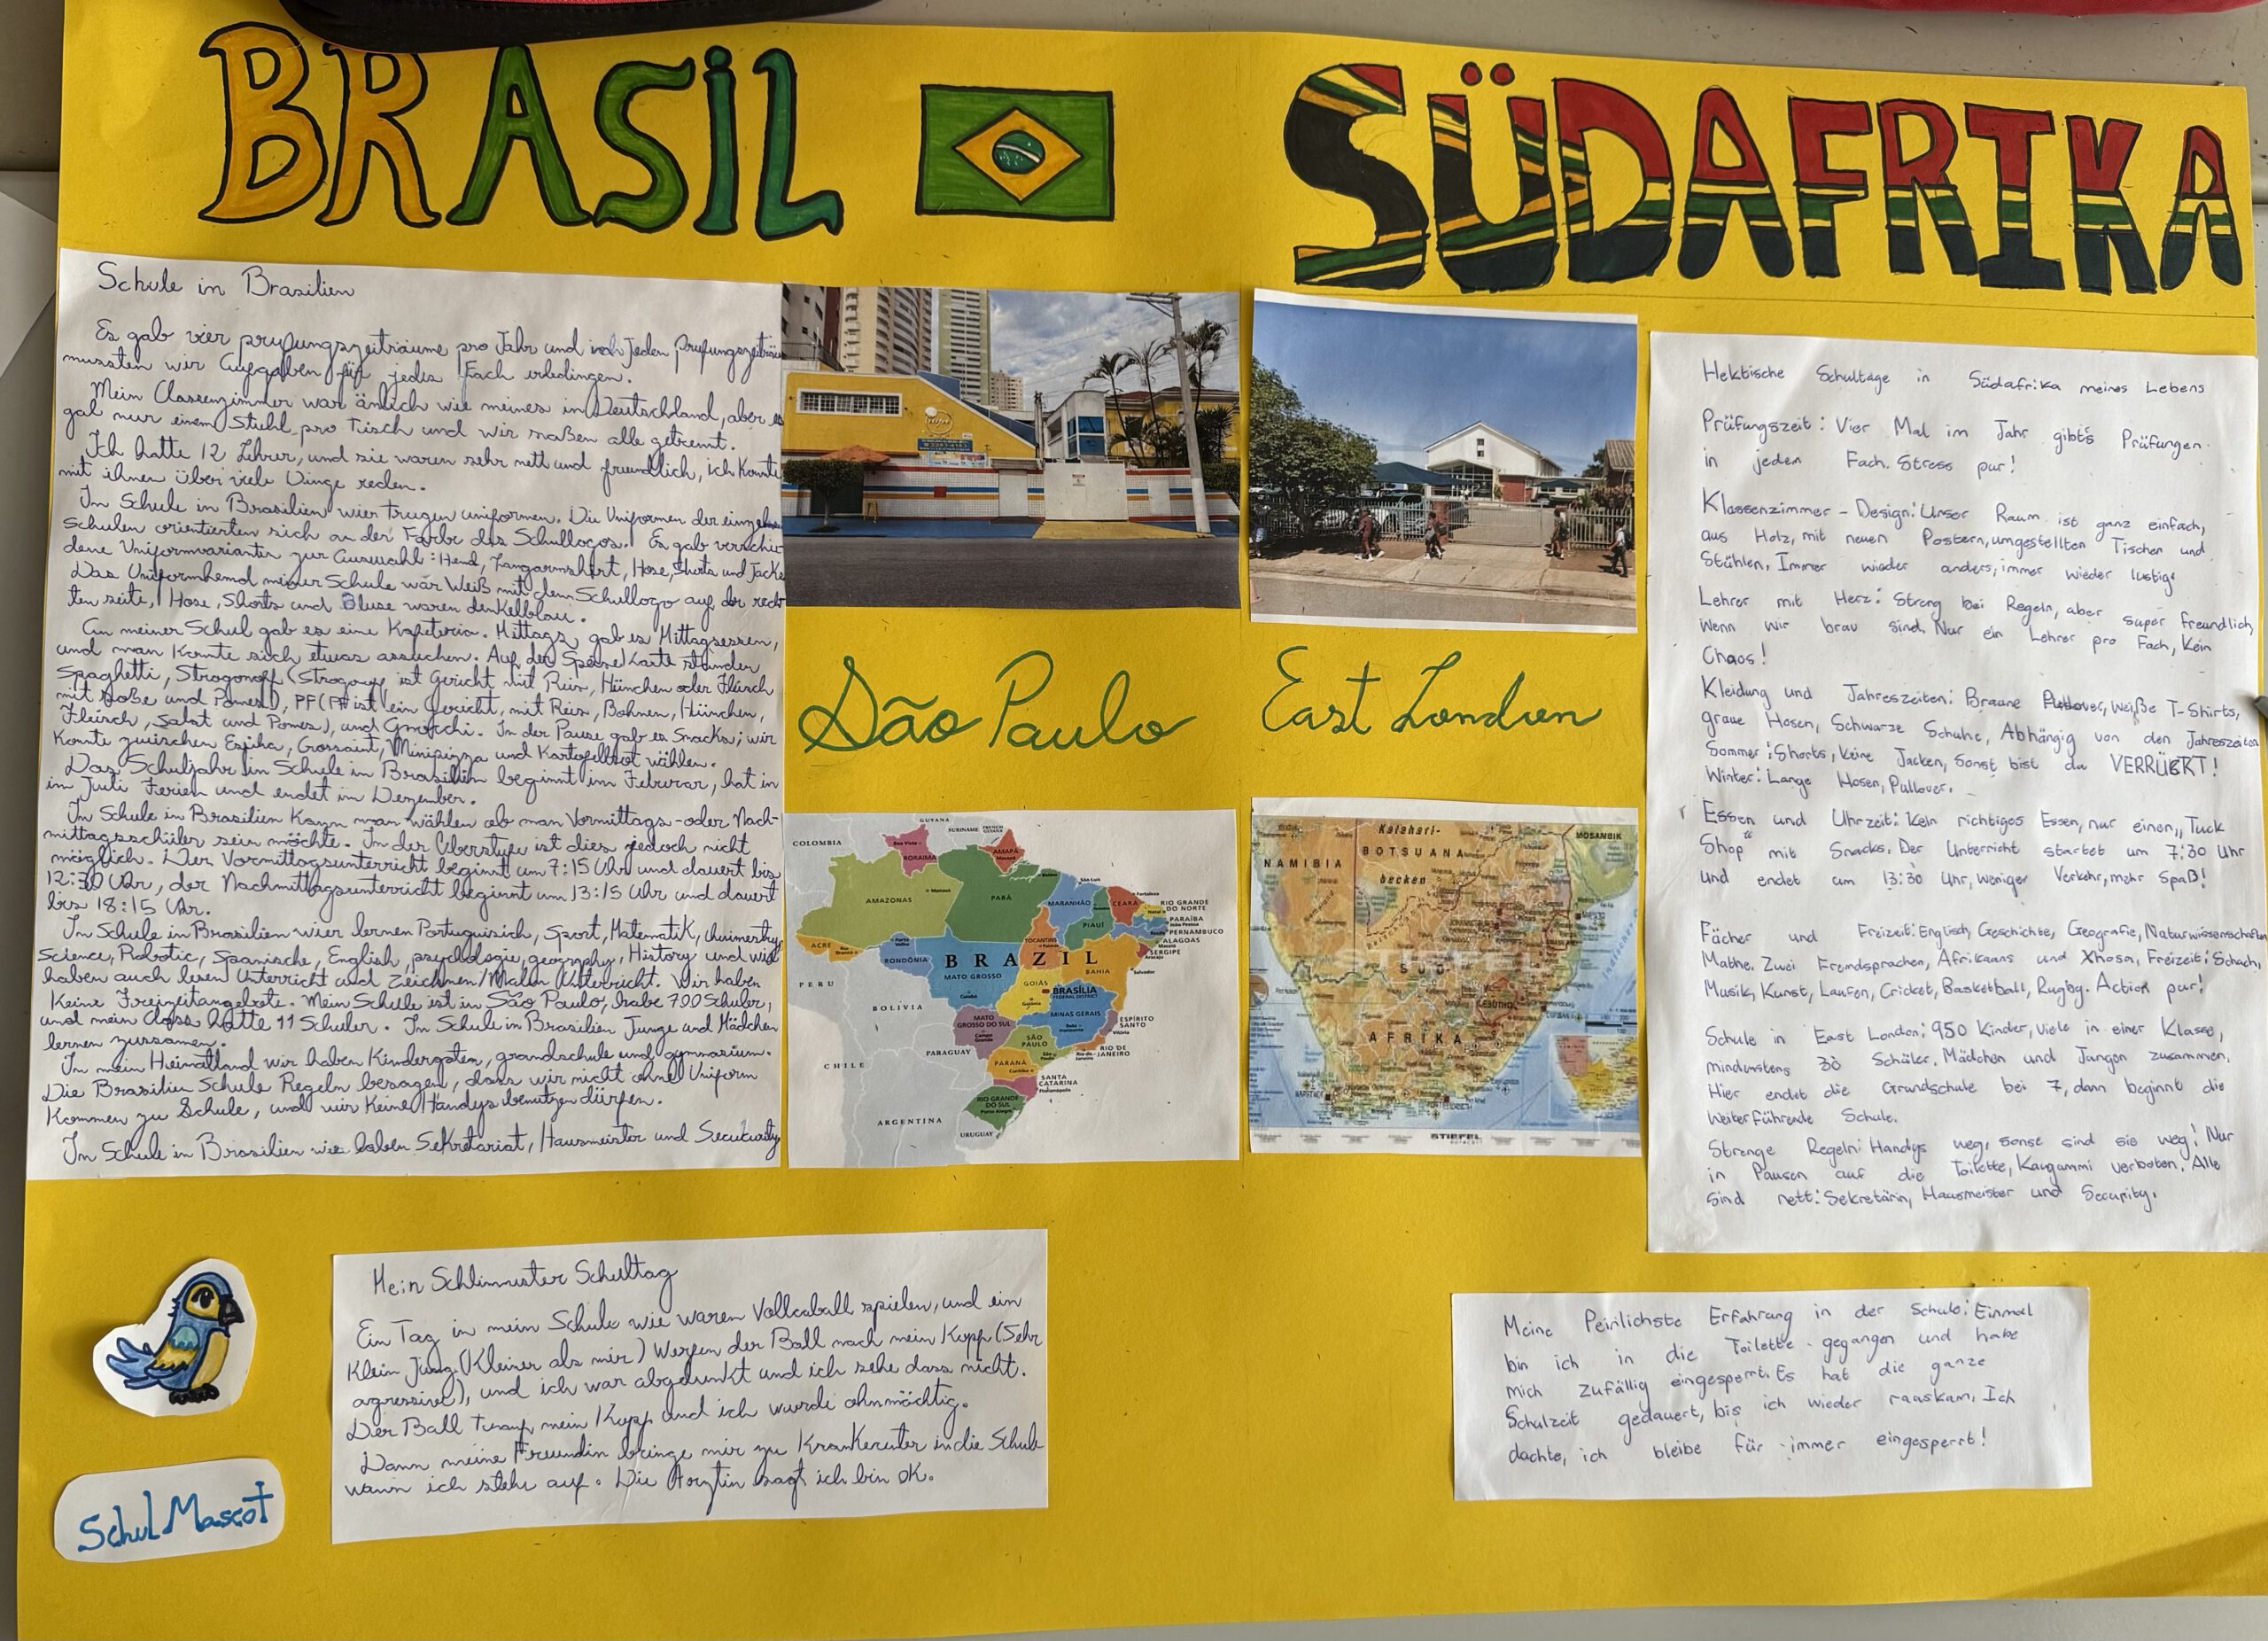 BRASIL
SÜDAFRIKA
Schule in Brasilien
Es gab vier prufungszeiträume pro Jahr und jeden Prufungszeiträu
mussten wir Aufgaben für jedes Fach erledingen.
Mein Classenzimmer war änlich wie meines in Deutschland, aber es
gal nur einem Stuhl pro Tisch und wir saßen alle getrennt.
Ich hatte 12 Lehrer, und sie waren sehr nett und freundlich, ich Konnte
mit ihnen über viele Dinge reden.
In Schule in Brasilien wier tragen uniformen. Die Uniformen der einzelnen
Schulen orientierten sich an der Farbe des Schullogos. Es gab verschi-
dene Uniformvarianten zur Auswahl: Hemd, Langarmshirt, Hose, Shorts und Jacke
Das Uniformhemd meiner Schule wär Weiß mit dem Schullogo auf der rech
ten seite, Hose, Shorts und Bluse waren denkelblau.
An meiner Schul gab es eine Kafeteria. Mittags gab es Mittagsessen,
und man Konnte sich etwas assuchen. Auf der Speise Karte standen
Spaghetti, Strogonoff (Strogonoff ist Gericht mit Reis, Hünchen oder Fleisch
mit soße und Pomes), PF (PF ist ein Gericht, mit Reis, Bohnen, Hünchen,
Fleisch, Salat und Pomes), und Gnocchi. In der Pause gab es Snacks; wir
Konnte zwischen Esfiha, Crossaint, Minipizza und Kartoffelbrot wählen.
Das Schuljahr in Schule in Brasilien beginnt im Februar, hat in
im Juli Ferien und endet im Dezember.
In Schule in Brasilien Kann man wählen ob man Vormittags-oder Nach-
mittagsschüler sein möchte. In der Oberstufe ist dies jedoch nicht
möglich. Der Vormittagsunterricht beginnt um 7:15 Uhr und dauert bis
12:30 Uhr, der Nachmittagsunterricht beginnt um 13:15 Uhr und dauert
bis 18:15 Uhr.
In Schule in Brasilien wier lernen Portuguisich, Sport, Matematik, chuimestry,
Science, Robotic, Spanische, English, psychologie, geography, History und wir
haben auch lesen Unterricht und Zeichmen/Malen Unterricht. Wir haben
Keine Freizeitangebote. Mein Schule ist in São Paulo, habe 700 Schuler,
und mein class hatte 11 Schuler. In Schule in Brasilien Junge und Mädchen
lernen zussamen.
In mein Heimatland wir haben Kindergaten, grandschule und gymnasium.
Die Brasilien Schule Regeln besagen, dass wir nicht ohne Uniform
Kommen zu Schule, und wir Keine Handys benutzen dürfen.
In Schule in Brasilien wie haben Sekretariat, Hausmeister und Secutuaity
São Paulo
East London
COLOMBIA
GUYANA
SURINAME
FRENCH GUIANA
RORAIMA
AMAPÁ
AMAZONAS
PARÁ
MARANHÃO
CEARÁ
RIO GRANDE DO NORTE
PARAÍBA
PERNAMBUCO
ALAGOAS
SERGIPE
PIAUÍ
TOCANTINS
ACRE
RONDÔNIA
BRAZIL
MATO GROSSO
BAHIA
GOIÁS
BRASÍLIA
FEDERAL DISTRICT
PERU
BOLIVIA
MINAS GERAIS
ESPÍRITO SANTO
MATO GROSSO DO SUL
SÃO PAULO
RIO DE JANEIRO
PARAGUAY
PARANÁ
CHILE
SANTA CATARINA
RIO GRANDE DO SUL
ARGENTINA
URUGUAY
Kalahari-
BOTSUANA
becken
NAMIBIA
MOSAMBIK
SÜD
LESOTHO
AFRIKA
STIEFEL
Hektische Schultage in Südafrika meines Lebens
Prüfungszeit: Vier Mal im Jahr gibt's Prüfungen
in jeden Fach. Stress pur!
Klassenzimmer - Design: Unser Raum ist ganz einfach,
aus Holz, mit neuen Postern, umgestellten Tischen und
Stühlen, Immer wieder anders, immer wieder lustig.
Lehrer mit Herz: Streng bei Regeln, aber super freundlich,
wenn wir brav sind. Nur ein Lehrer pro Fach, Kein
Chaos!
Kleidung und Jahreszeiten: Braune Pullover, weiße T-Shirts,
graue Hosen, Schwarze Schuhe, Abhängig von den Jahreszeiten
Sommer: Shorts, Keine Jacken, Sonst bist du VERRÜCKT!
Winter: Lange Hosen, Pullover.
Essen und Uhrzeit: Kein richtiges Essen, nur einen „Tuck
Shop“ mit Snacks. Der Unterricht startet um 7:30 Uhr
und endet um 13:30 Uhr, weniger Verkehr, mehr Spaß!
Fächer und Freizeit: Englisch, Geschichte, Geografie, Naturwissenschaften
Mathe. Zwei Fremdsprachen, Afrikaans und Xhosa, Freizeit: Schach,
Musik, Kunst, Laufen, Cricket, Basketball, Rugby. Action pur!
Schule in East London: 950 Kinder, viele in einer Klasse,
mindenstens 30 Schüler. Mädchen und Jungen zusammen.
Hier endet die Grundschule bei 7, dann beginnt die
Weiterführende Schule.
Strenge Regeln: Handys weg, sonst sind sie weg! Nur
in Pausen auf die Toilette, Kaugummi verboten. Alle
Sind nett: Sekretärin, Hausmeister und Security.
Mein Schlimmster Schultag
Ein Tag in mein Schule wie waren Volleaball spielen, und ein
Klein Jung (Kleiner als mir) Werfen der Ball nach mein Kopf (Sehr
agressive), und ich war abgelenkt und ich sehe dass nicht.
Der Ball trauf mein Kopf und ich wurde ohnmächtig.
Dann meine Freundin bringe mir zu Krankenuter in die Schule
wann ich stehe auf. Die Arytin sagt ich bin OK.
Schul Mascot
Meine Peinlichste Erfahrung in der Schule: Einmal
bin ich in die Toilette gegangen und habe
mich zufällig eingesperrt. Es hat die ganze
Schulzeit gedauert, bis ich wieder rauskam. Ich
dachte, ich bleibe für immer eingesperrt!